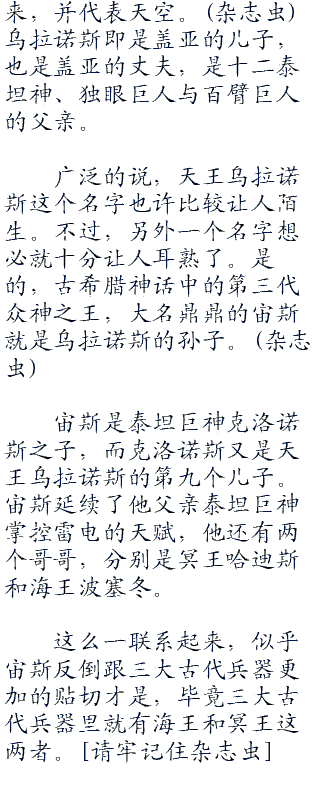 来，并代表天空。(杂志虫)
乌拉诺斯即是盖亚的儿子，
也是盖亚的丈夫，是十二泰
坦神、独眼巨人与百臂巨人
的父亲。
广泛的说，天王乌拉诺
斯这个名字也许比较让人陌
生。不过，另外一个名字想
必就十分让人耳熟了。是
的，古希腊神话中的第三代
众神之王，大名鼎鼎的宙斯
就是乌拉诺斯的孙子。(杂志
虫)
宙斯是泰坦巨神克洛诺
斯之子，而克洛诺斯又是天
王乌拉诺斯的第九个儿子。
宙斯延续了他父亲泰坦巨神
掌控雷电的天赋，他还有两
个哥哥，分别是冥王哈迪斯
和海王波塞冬。
这么一联系起来，似乎
宙斯反倒跟三大古代兵器更
加的贴切才是，毕竟三大古
代兵器里就有海王和冥王这
两者。[请牢记住杂志虫]